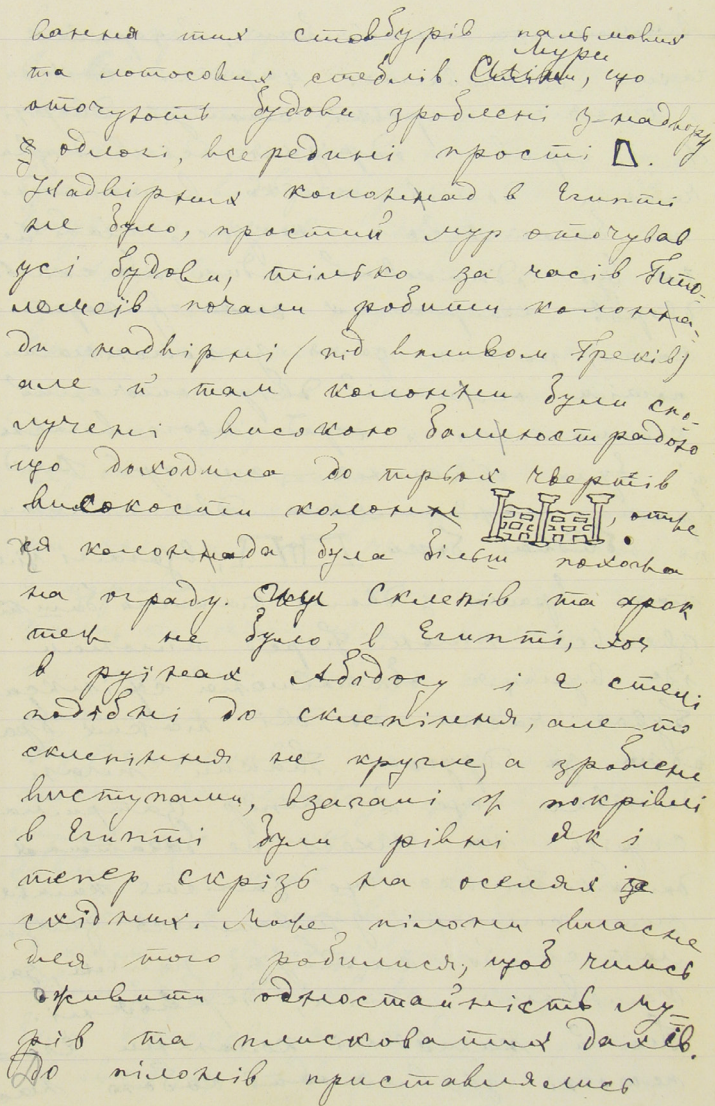 вання тих стовбурів пальмових
та лотосових стеблів. Мури, що
оточують будови зроблені з-надвору
одлогі, всередині прості
Надвірних колонад в Египті
не було, простий мур оточував
усі будови, тілько за часів Пто-
лемеїв почали робити колона-
ди надвірні (під впливом Греків)
але й там колони були спо-
лучені високою балюстрадою
що доходила до трьох чвертів
високости колон, отже
ся колонада була більш похожа
на ограду. Склепів та арок
теж не було в Египті, хоч
в руїнах Абідосу і є стелі
подібні до склепіння, але то
склепіння не кругле, а зроблене
виступами, взагалі ж покрівлі
в Египті були рівні як і
тепер скрізь на оселях
східних. Може пілони власне
для того робилися, щоб чимсь
оживити одностайність му-
рів та плисковатих дахів.
До пілонів приставлялись